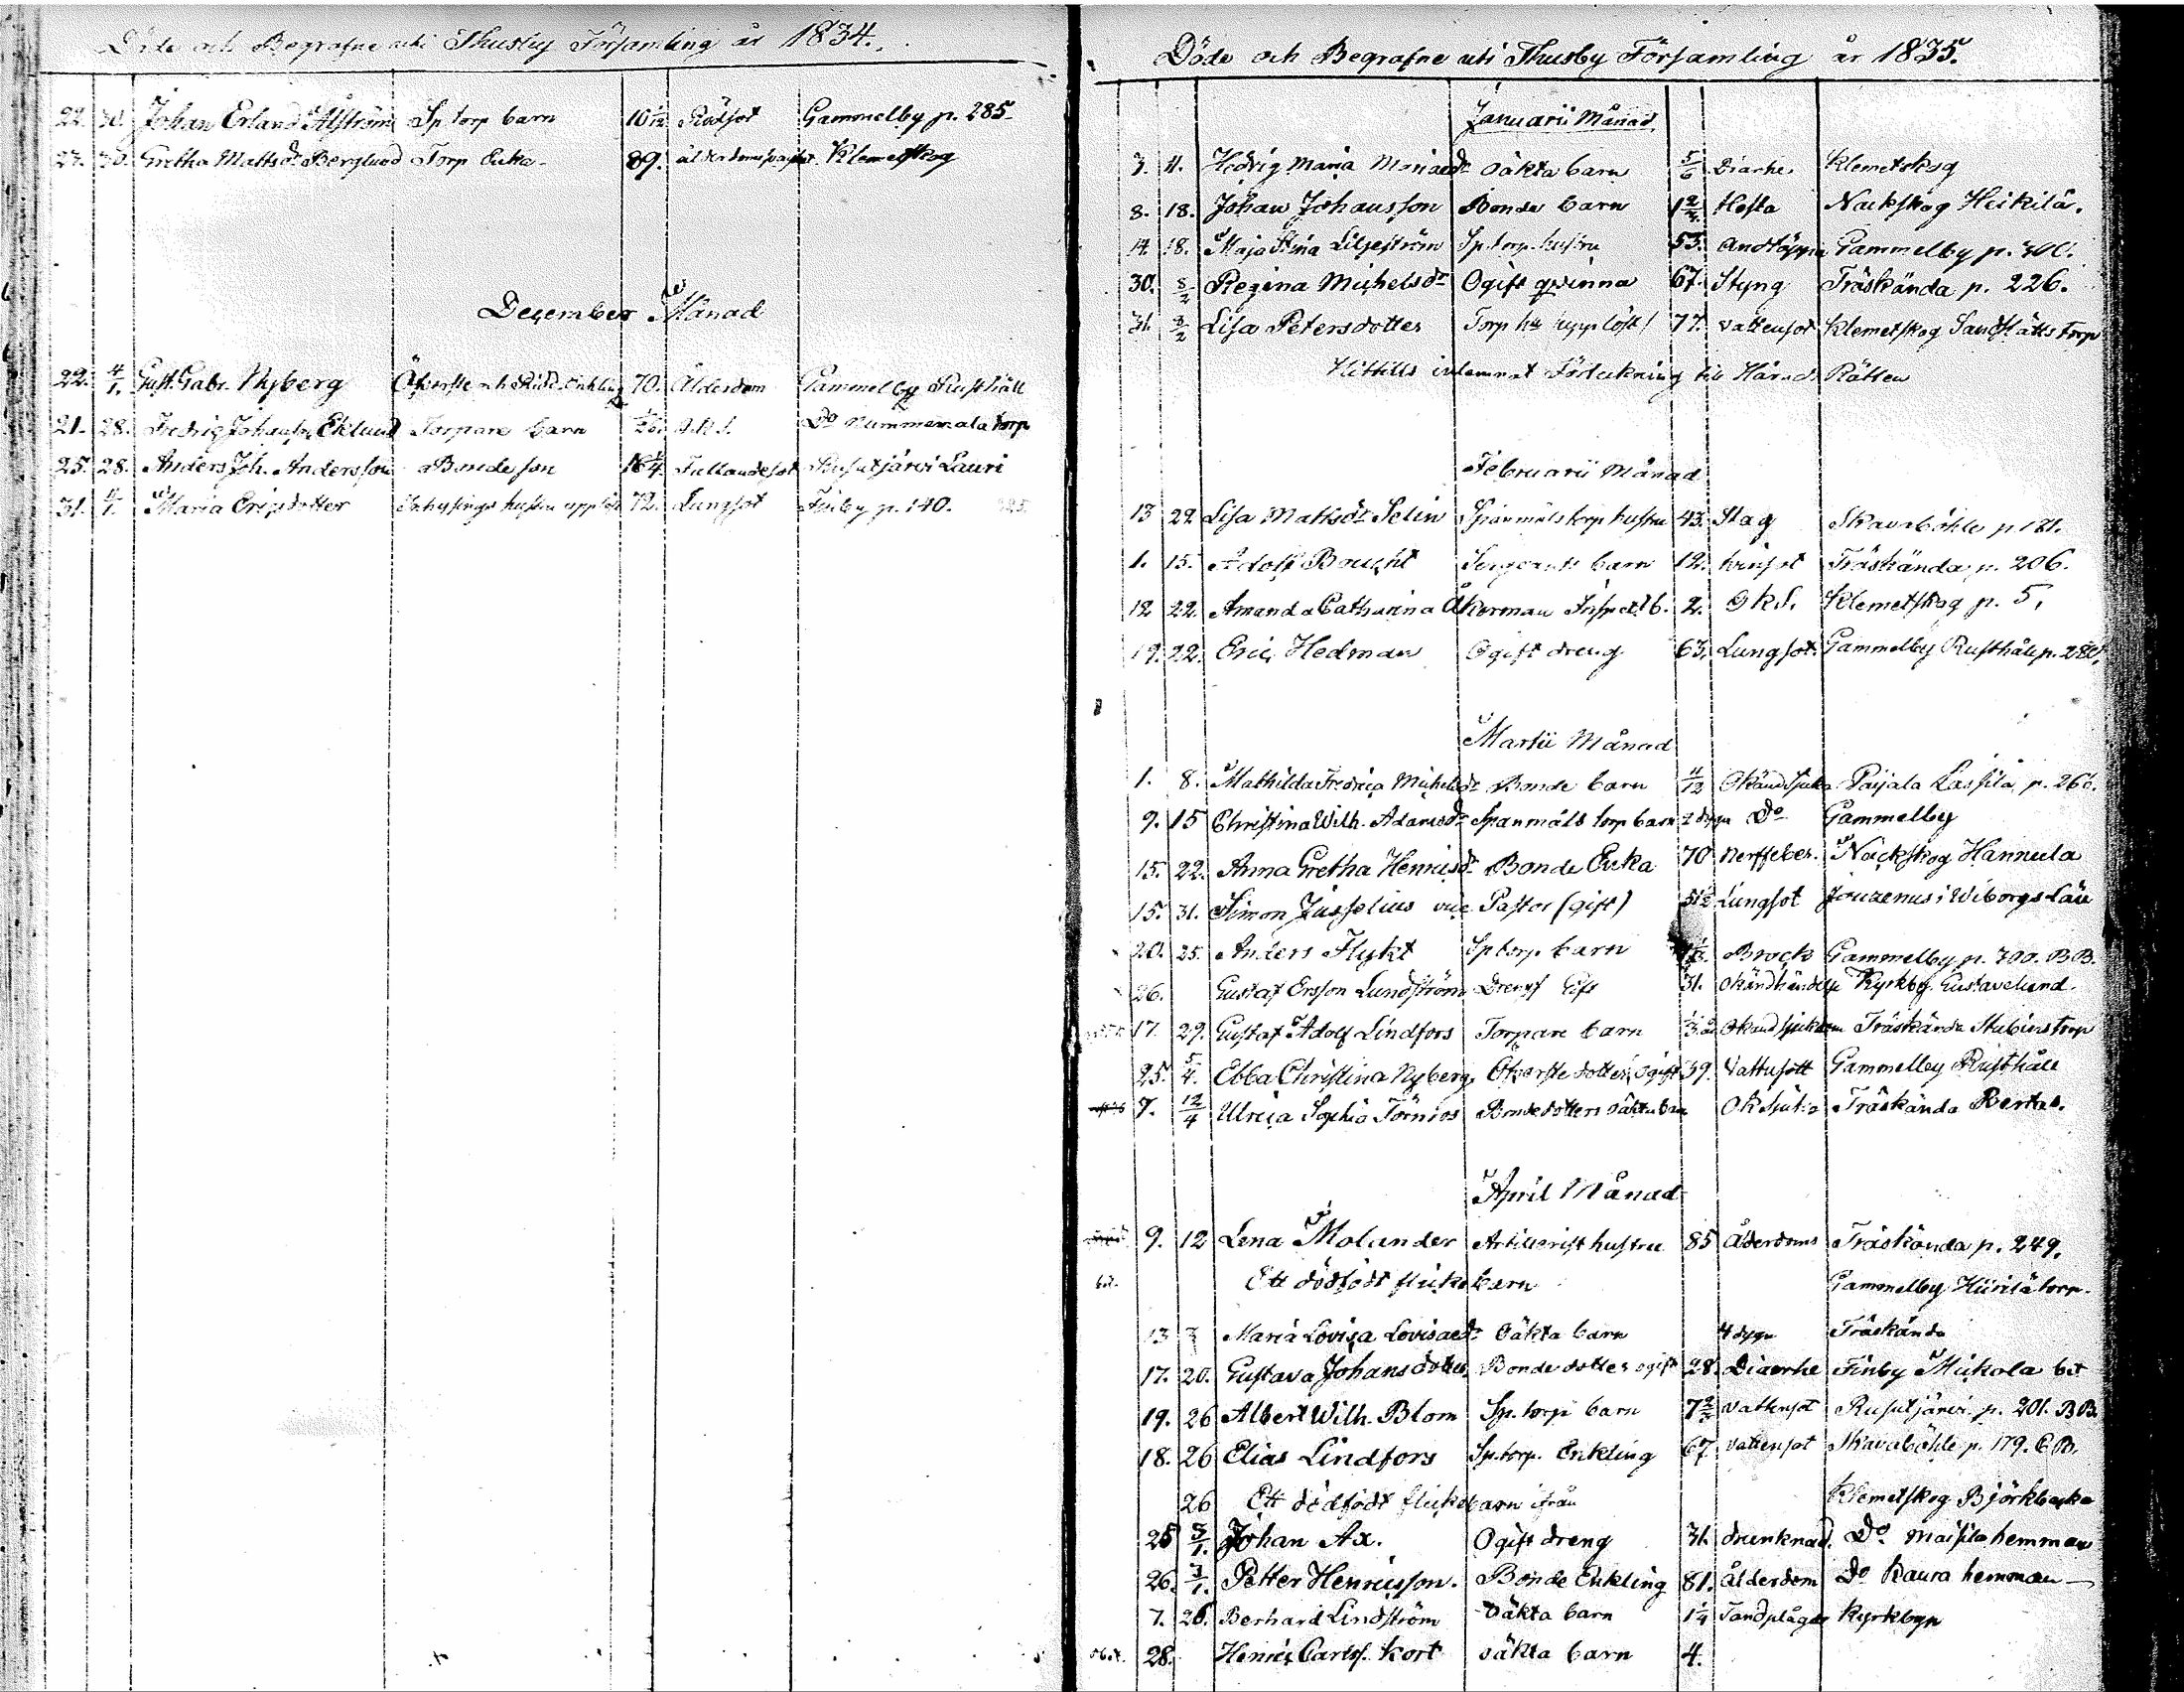 Döde och Begrafne uti Thusby Församling år 1834.
22. 30. Johan Erland Ahlström Sp torp barn 10 1/12 Rödsot Gammelby p. 285
27. 30. Gretha Matts dr Berglund Torp Enka 89. Klemetskog
December Månad
22. 4/1. Gust. Gabr. Nyberg Öfverste och Enkling 70. Ålderdom Gammelby Rusthåll
21. 28. Fredrig Johansson Eklund Torpare barn O.K.S. Do Nummenmala torp
25. 28. Anders Joh. Andersson Bonde son 16 1/4. Fallandesot Rusutjärvi Lauri
31. 4/1. Maria Ericsdotter Inhysings hustru 72. Lungsot Finby p. 140.
Döde och Begrafne uti Thusby Församling år 1835.
Januarii Månad
3. 11. Hedvig Maria Mariae dr Oäkta barn 5/6 Diarhe Klemetskog
8. 18. Johan Johansson Bonde barn Hosta Nackskog Heikilä.
14. 18. Maja Stina Liljeström Sp. torp. hustru 53. Andtäppa Gammelby p. 300.
30. 8/2 Regina Michelsdr Ogift qvinna 67. Styng Träskända p. 226.
31. 8/2 Lisa Petersdotter Torp h. upplöst 77. Vattensot Klemetskog Sandslätts torp
Hittills inlemnat Förtekning till Härads Rätten
Februarii Månad
13 22. Lisa Mattsdr Selin Spanmåls torp hustru 43. Slag Skavaböhle p. 181.
1. 15. Adolf Boucht Sergeants barn 12. Träskända p. 206.
12 22. Amanda Catharina Åkerman Inspect. b. 2. O k S. Klemetskog p. 5.
19. 22. Eric Hedman Ogift dreng 63. Lungsot. Gammelby Rusthåll p. 280.
Martii Månad
1. 8. Mathilda Fredrica Michelsdr Bonde barn 11/12 Okänd sjuka Paijala Lassila p. 266.
9. 15 Christina Wilh. Adamsdr Spanmåls torp barn 2 dygn Do Gammelby
15. 22. Anna Gretha Henricsdr Bonde Enka 70 Nervfeber. Nackskog Hannula
15. 31. Simon Jusselius vice Pastor (gift) 51 1/2 Lungsot Jouzenus i Wiborgs Län
20. 25. Anders Flykt Sp torp barn Brock Gammelby p. 300. BB.
26. Gustaf Ersson Lundström Dreng Gift 31. Okänd händelse Kyrkby Gustavelund.
17. 29. Gustaf Adolf Lindfors Torpare barn Okänd sjukdom Träskända Stubins torp
25. 5/4. Ebba Christina Nyberg Öfverste dotter, ogift 39. Vattusott Gammelby Rusthåll
7. 12/4 Ulrica Sophia Törnros Bondedotters oäkta barn Ok sjuka Träskända Bertas.
April Månad
9. 12 Lena Molander Artillerist hustru 85 Ålderdoms Träskända p. 249.
Ett dödfödt flickebarn Gammelby Hiirilä torp.
13 Maria Lovisa Lovisaedr Oäkta barn 4 dygn Träskända
17. 20. Gustava Johansdotter Bondedotter ogift 28. Diarrhe Finby Mickola bol
19. 26 Albert Wilh. Blom Sp. torp barn 7 2/3 Vattensot Rusutjärvi p. 201. BB.
18. 26 Elias Lindfors Sp. torp. Enkling 67. Vattensot Skavaböhle p. 179. C B.
26 Ett dödfödt flickebarn ifrån Klemetskog Björkbacka
25 3/1. Johan Ax. Ogift dreng 31. drunknad. Do Maisila hemman
26. 3/1. Petter Henricsson. Bonde Enkling 81. ålderdom Do Kaura hemman
7. 26. Berhard Lindström Oäkta barn 1 1/4 Tandplåga Kyrkbyn
28. Henric Carlss. Kort oäkta barn 4.